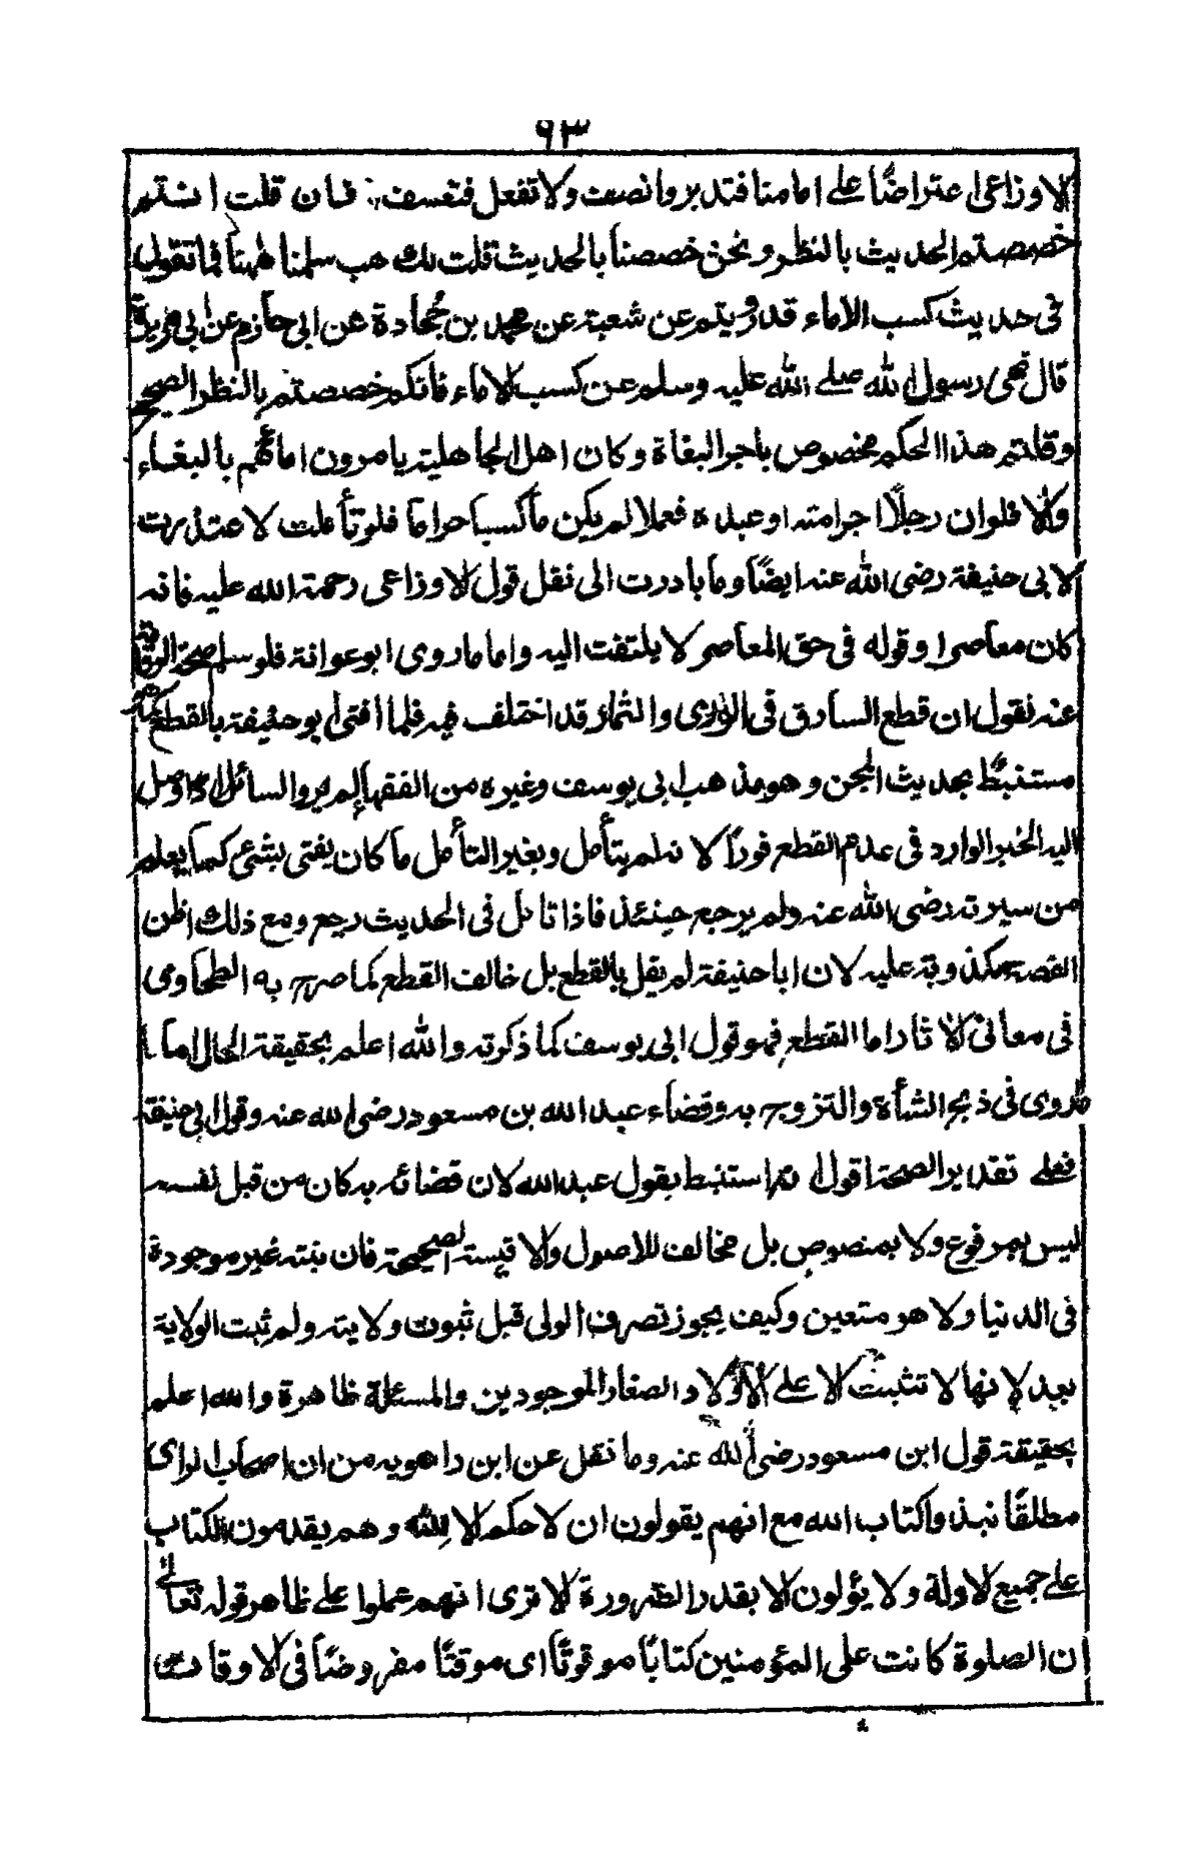 ٩٣
الاوزاعى اعتراضًا على امامنا فتدبر وانصف ولا تفعل فتعسف فان قلت انتم
خصصتم الحديث بالنظر ونحن خصصنا بالحديث قلت لك هب سلمنا ههنا فما تقول
فى حديث كسب الاماء قد رويتم عن شعبة عن محمد بن جُحادة عن ابى حازم عن ابى هريرة
قال نهى رسول الله صلى الله عليه وسلم عن كسب الاماء فانكم خصصتم بالنظر الصحيح
وقلتم هذا الحكم مخصوص باجر البغاة وكان اهل الجاهلية يامرون امائهم بالبغاء
والا فلو ان رجلًا اجر امته او عبده فعملا لم يكن ما كسبا حراما فلو تأملت لاعتذرت
لابى حنيفة رضى الله عنه ايضًا وما بادرت الى نقل قول الاوزاعى رحمة الله عليه فانه
كان معاصرا وقوله فى حق المعاصر لا يلتفت اليه واما ما روى ابو عوانة فلو سلم صحة الرواية
عنه نقول ان قطع السارق فى الودى والثمار قد اختلف فيه فلما افتى ابو حنيفة بالقطع
مستنبطًا بحديث المجن وهو مذهب ابى يوسف وغيره من الفقها لم ير والسائل اذا وصل
اليه الخبر الوارد فى عدم القطع فورًا لانه لم يتأمل وبغير التأمل ما كان يفتى بشئ كما يعلم
من سيرته رضى الله عنه ولم يرجع حينئذ فاذا تامل فى الحديث رجع ومع ذلك اظن
القصة مكذوبة عليه لان ابا حنيفة لم يقل بالقطع بل خالف القطع كما صرح به الطحاوى
فى معانى الاثار اما القطع فهو قول ابى يوسف كما ذكرته والله اعلم بحقيقة الحال اما ما
روى فى ذبح الشأة والتزوج به وقضاء عبد الله بن مسعود رضى الله عنه وقول ابى حنيفة
فعلى تقدير الصحة اقول استنبط بقول عبد الله لان قضائه به كان من قبل نفسه
ليس بمرفوع ولا بمنصوص بل مخالف للاصول والاقيسة الصحيحة فان بنته غير موجودة
فى الدنيا ولا هو متعين وكيف يجوز تصرف الولى قبل ثبوت ولايته ولم تثبت الولاية
بعد لانها لا تثبت الا على الاولاد الصغار الموجودين والمسئلة ظاهرة والله اعلم
بحقيقة قول ابن مسعود رضى الله عنه وما نقل عن ابن راهويه من ان اصحاب الراى
مطلقًا نبذوا كتاب الله مع انهم يقولون ان لا حكم الا لله وهم يقدمون الكتاب
على جميع الادلة ولا يؤلون الا بقدر الضرورة الا ترى انهم عملوا على ظاهر قوله تعالى
ان الصلوة كانت على المؤمنين كتابًا موقوتًا اى موقتًا مفروضًا فى الاوقات